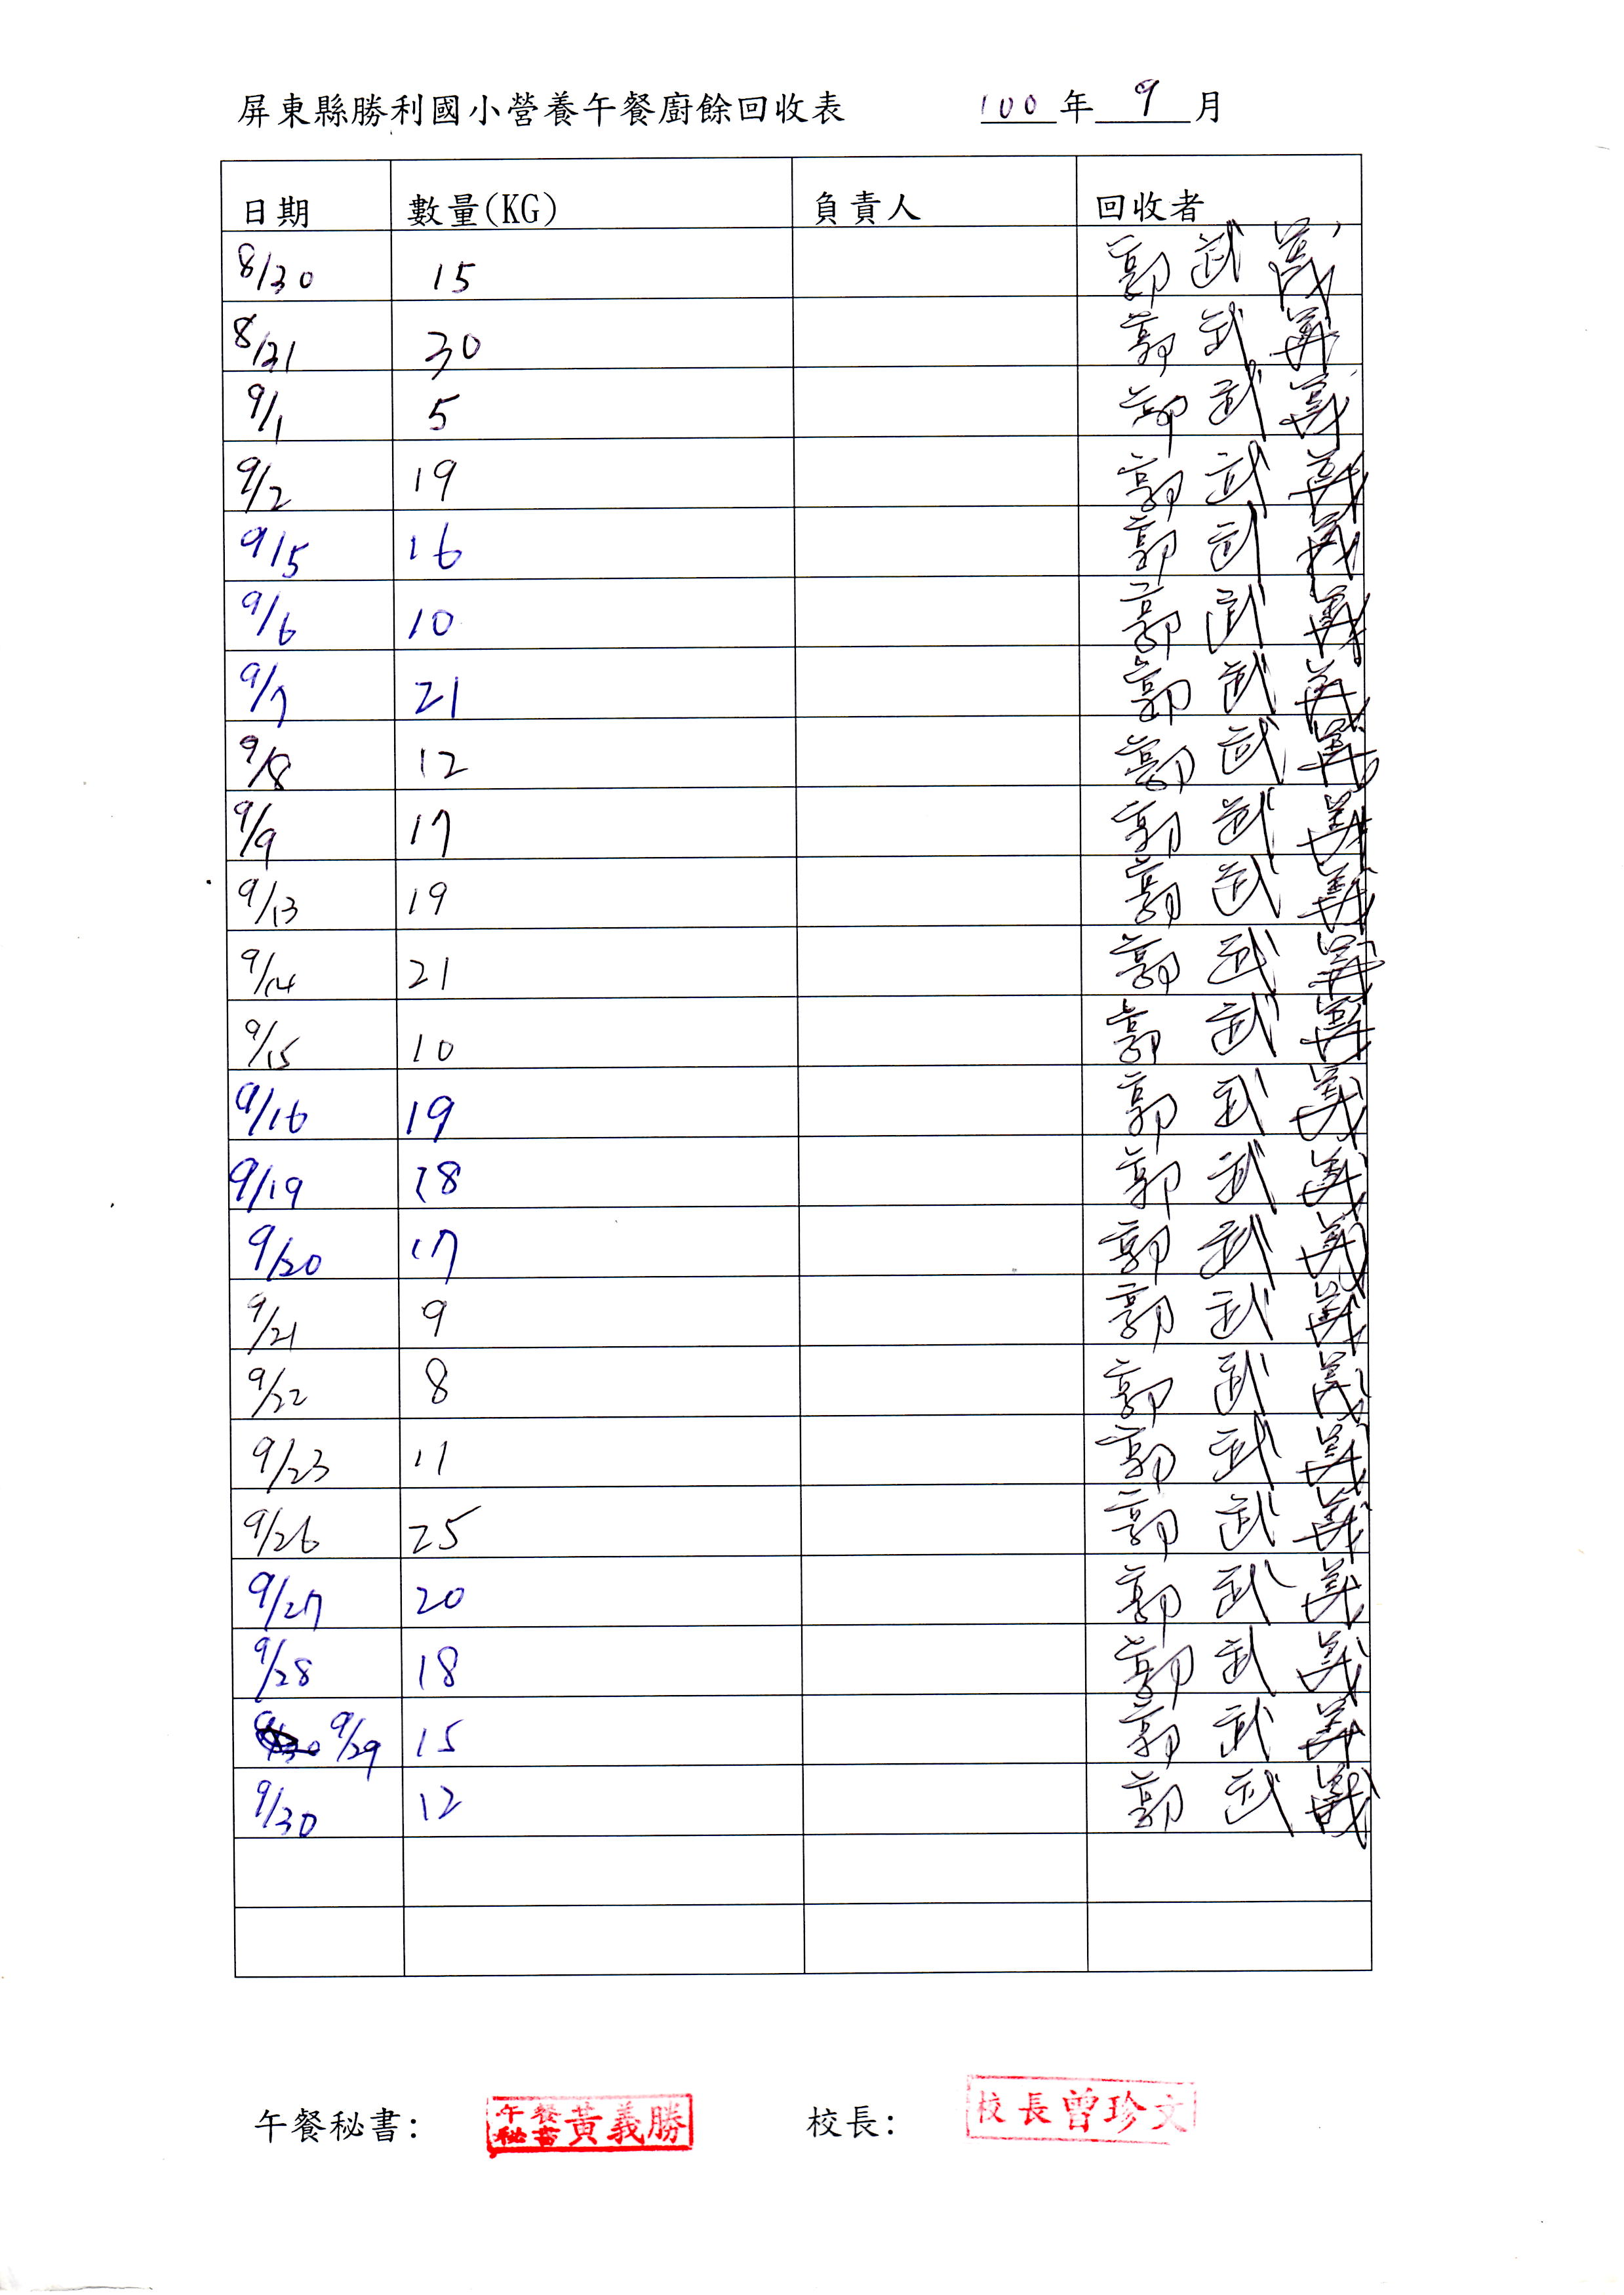 屏東縣勝利國小營養午餐廚餘回收表 100年9月
日期 數量(KG) 負責人 回收者
8/30 15 郭武義
8/31 30 郭武義
9/1 5 郭武義
9/2 19 郭武義
9/5 16 郭武義
9/6 10 郭武義
9/7 21 郭武義
9/8 12 郭武義
9/9 17 郭武義
9/13 19 郭武義
9/14 21 郭武義
9/15 10 郭武義
9/16 19 郭武義
9/19 18 郭武義
9/20 17 郭武義
9/21 9 郭武義
9/22 8 郭武義
9/23 11 郭武義
9/26 25 郭武義
9/27 20 郭武義
9/28 18 郭武義
9/29 15 郭武義
9/30 12 郭武義
午餐秘書: 午餐秘書黃義勝 校長: 校長曾珍文